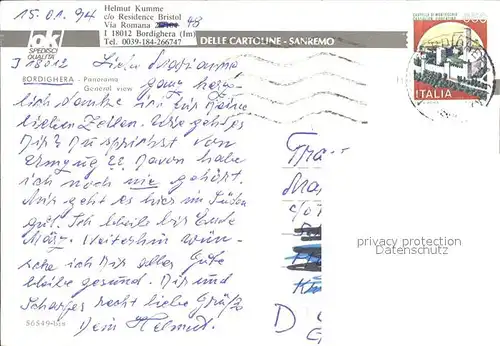 15. 01. 94
Helmut Kumme
c/o Residence Bristol
Via Romana 48
I 18012 Bordighera (Im)
Tel. 0039-184-266747
SPEDISCI
QUALITÀ
DELLE CARTOLINE - SANREMO
I 18012
BORDIGHERA - Panorama
General view
ITALIA
Liebe Marianne
ganz herz-
lich danke ich für Deine
lieben Zeilen. Wie geht es
Dir? Du sprichst von
Umzug?? Davon habe
ich noch nie gehört.
Mir geht es hier im Süden
gut. Ich bleibe bis Ende
März. Weiterhin wün-
sche ich Dir alles Gute
bleibe gesund. Dir und
recht liebe Grüße
Dein Helmut.
56549-
Frau
c/o
D
privacy protection
Datenschutz